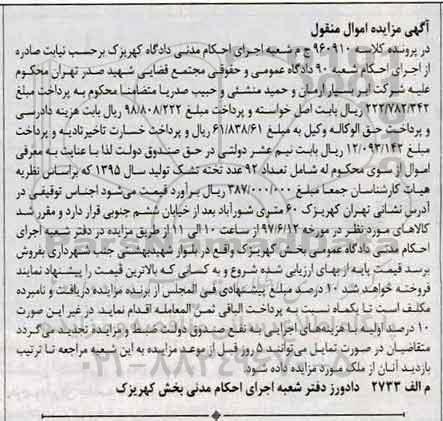 آگهی مزایده اموال منقول
در پرونده کلاسه ۹۶۰۹۱۰ ج م شعبه اجرای احکام مدنی دادگاه کهریزک برحسب نیابت صادره
از اجرای احکام شعبه ۹۰ دادگاه عمومی و حقوقی مجتمع قضایی شهید صدر تهران محکوم
علیه شرکت ابر بسپار آرمان و حمید منشئی و حبیب صدریا متضامنا محکوم به پرداخت مبلغ
۲۲۲/۷۸۲/۳۴۲ ریال بابت اصل خواسته و پرداخت مبلغ ۹۸/۸۰۸/۲۲۲ ریال بابت هزینه دادرسی
و پرداخت حق الوکاله وکیل به مبلغ ۶۱/۸۳۸/۶۱ ریال و پرداخت خسارت تاخیرتادیه و پرداخت
مبلغ ۱۲/۰۹۳/۱۴۲ ریال بابت نیم عشر دولتی در حق صندوق دولت لذا با عنایت به معرفی
اموال از سوی محکوم له شامل تعداد ۹۲ عدد تخته تشک تولید سال ۱۳۹۵ که براساس نظریه
هیات کارشناسان جمعا مبلغ ۳۸۷/۰۰۰/۰۰۰ ریال برآورد قیمت می‌شود اجناس توقیفی در
آدرس نشانی تهران کهریزک ۶۰ متری شورآباد بعد از خیابان ششم جنوبی قرار دارد و مقرر شد
کالاهای مورد نظر در مورخه ۹۷/۶/۱۲ از ساعت ۱۰ الی ۱۱ از طریق مزایده در دفتر شعبه اجرای
احکام مدنی دادگاه عمومی بخش کهریزک واقع در بلوار شهیدبهشتی جنب شهرداری بفروش
برسد قیمت پایه از بهای ارزیابی شده شروع و به کسانی که بالاترین قیمت را پیشنهاد نمایند
فروخته خواهد شد ۱۰ درصد مبلغ پیشنهادی فی المجلس از برنده مزایده دریافت و نامبرده
مکلف است تا یکماه نسبت به پرداخت الباقی ثمن المعامله اقدام نماید در غیر این صورت
۱۰ درصد اولیه با هزینه‌های اجرایی به نفع صندوق دولت ضبط و مزایده تجدید می‌گردد
متقاضیان در صورت تمایل می‌توانید ۵ روز قبل از موعد مزایده به این شعبه مراجعه تا ترتیب
بازدید آنان از ملک مورد مزایده داده شود.
م الف ۲۷۳۳ دادورز دفتر شعبه اجرای احکام مدنی بخش کهریزک